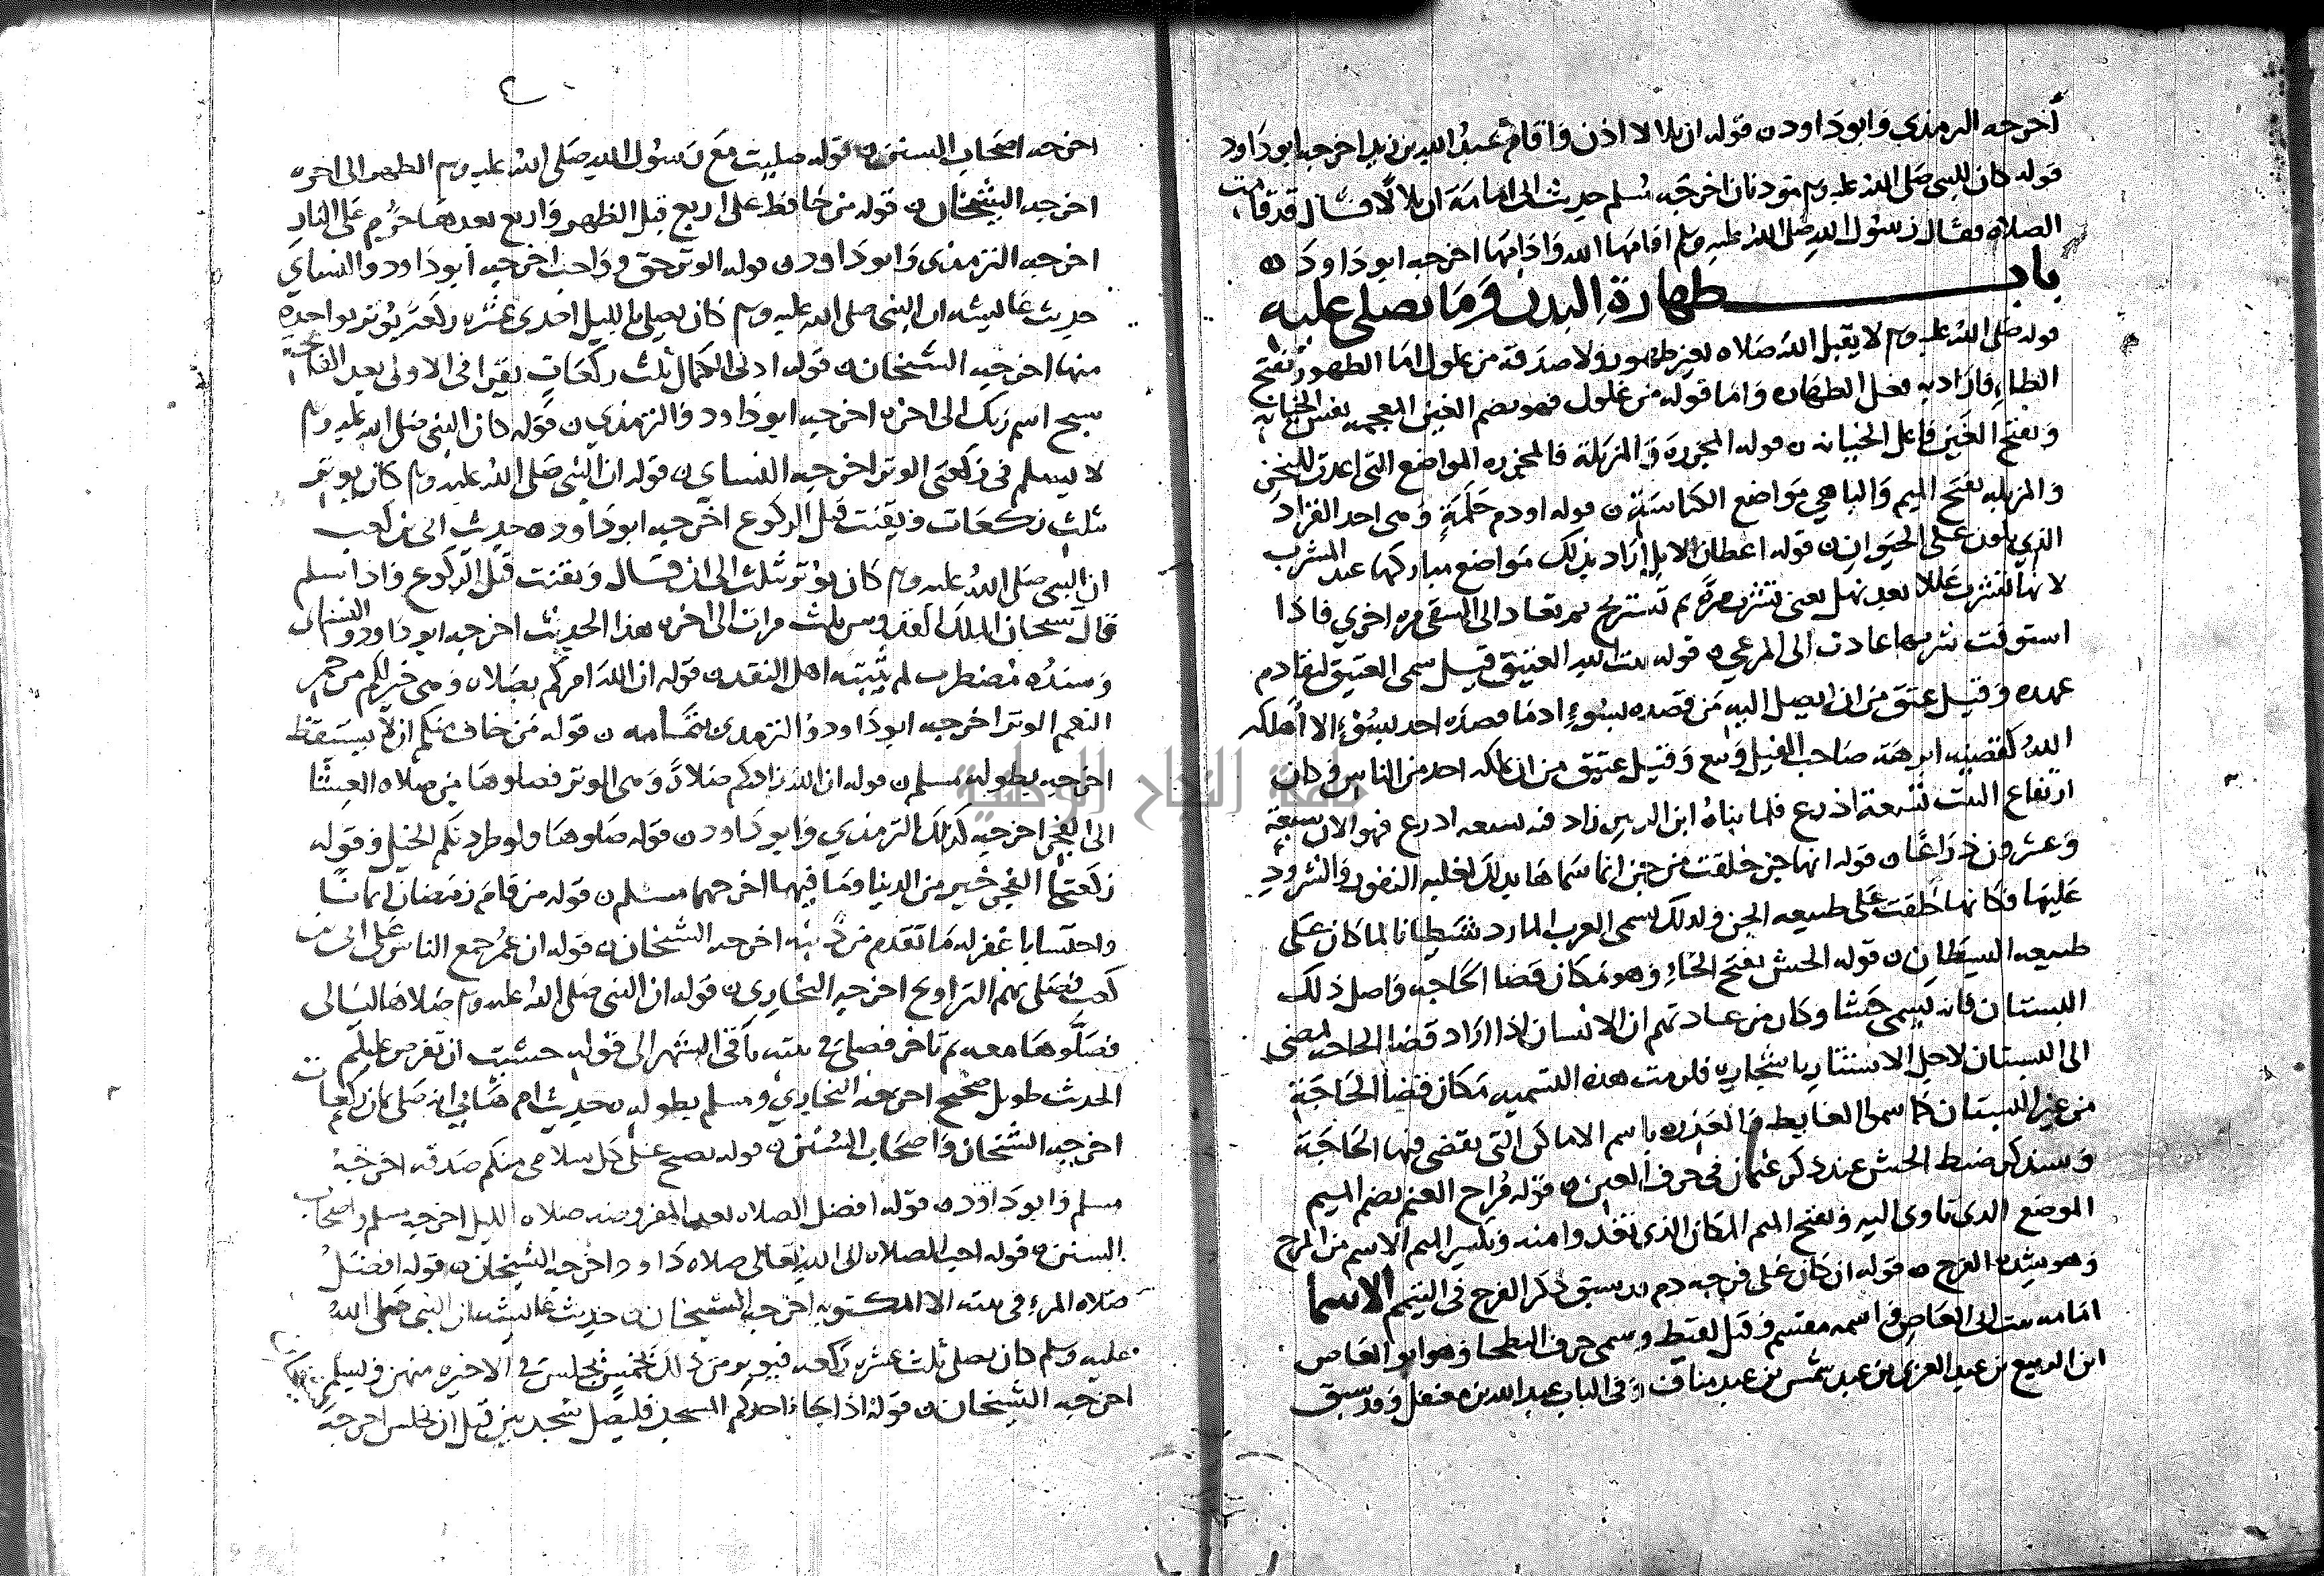 أخرجه الترمذي وابو داود ن قوله ان بلالا اذن واقام عبد الله بن زيد اخرجه ابو داود
قوله كان للنبي صلى الله عليه وسلم موذنان اخرجه مسلم حديث ابى امامة ان بلالا قال قد قامت
الصلاه فقال رسول الله صلى الله عليه وسلم اقامها الله وادامها اخرجه ابو داود ن
باب طهارة البدن وما يصلى عليه
قوله صلى الله عليه وسلم لا يقبل الله صلاه بغير طهور ولا صدقه من غلول اما الطهور فبفتح
الطاء فاراد به فعل الطهاره واما قوله من غلول فهو بضم الغين المعجمه نفس الخيانه
وبفتح الغين فاعل الخيانه ن قوله المجزره والمزبلة فالمجزره المواضع التى اعدت للنحر
والمزبله بفتح الميم والبا هي مواضع الكناسة ن قوله او دم حلمة وهى احد القراد
الذي يكون على الحيوان ن قوله اعطان الابل اراد بذلك مواضع مباركها عند المشرب
لانها تشرب عللا بعد نهل يعنى تشرب مرة ثم تستريح ثم تعاد الى السقى مره اخري فاذا
استوفت شربها عادت الى المرعى ن قوله بيت الله العتيق قيل سمى العتيق لتقادم
عهده وقيل عتق من ان يصل اليه من قصده بسوء اذ ما قصده احد بسوء الا اهلكه
الله كقضيه ابرهة صاحب الفيل وتبع وقيل عتيق من ان ملكه احد من الناس وكان
ارتفاع البيت تسعة اذرع فلما بناه ابن الزبير زاد فيه تسعه اذرع فهو الان سبعة
وعشرون ذراعا ن قوله انها جن خلقت من جن انما سماها بذلك لغلبه النفور والشرود
عليها فكانها خلقت على طبيعه الجن ولذلك يسمى العرب المارد شيطانا لما كان على
طبيعه الشيطان ن قوله الحش بفتح الحاء وهو مكان قضا الحاجه واصل ذلك
البستان فانه يسمى حشا وكان من عادتهم ان الانسان اذا اراد قضا الحاجه يمضى
الى البستان لاجل الاستتار باشجاره فلزمت هذه التسميه مكان قضا الحاجة
من غير البستان كما سموا الغايط والعذره باسم الاماكن التى تقضى فيها الحاجة
وسنذكر ضبط الحش عند ذكر عثمان فى حرف العين ن قوله مراح الغنم بضم الميم
الموضع الذى تاوى اليه وبفتح الميم المكان الذى تغدوا منه وبكسر الميم الاسم من المرح
وهو شدة الفرح ن قوله ان كان على قرحه دم قد سبق ذكر القرح فى التيمم الاسما
امامه بنت ابى العاص واسمه مقسم وقيل لقيط وسمى جرو البطحا وهو ابو العاص
ابن الربيع بن عبد العزى بن عبد شمس بن عبد مناف وفى الباب عبد الله بن مغفل وقد سبق
اخرجه اصحاب السنن ن قوله صليت مع رسول الله صلى الله عليه وسلم الظهر الى اخره
اخرجه الشيخان ن قوله من حافظ على اربع قبل الظهر واربع بعدها حرم على النار
اخرجه الترمذى وابو داود ن قوله الوتر حق وواجب اخرجه ابو داود والنساي
حديث عائيشه ان النبى صلى الله عليه وسلم كان يصلى بالليل احدى عشره ركعة يوتر بواحدة
منها اخرجه الشيخان ن قوله ادنى الكمال ثلث ركعات يقرا فى الاولى بعد الفاتحة
سبح اسم ربك الى اخره اخرجه ابو داود والترمذي ن قوله كان النبى صلى الله عليه وسلم
لا يسلم فى ركعتى الوتر اخرجه النساي ن قوله ان النبى صلى الله عليه وسلم كان يوتر
بثلث ركعات ويقنت قبل الركوع اخرجه ابو داود ن حديث ابى بن كعب
ان النبى صلى الله عليه وسلم كان يوتر بثلث الى ان قال ويقنت قبل الركوع واذا سلم
قال سبحان الملك القدوس ثلث مرات الى اخره هذا الحديث اخرجه ابو داود والنساي
وسنده مضطرب لم يثبته اهل النقد ن قوله ان الله امركم بصلاه وهى خير لكم من حمر
النعم الوتر اخرجه ابو داود والترمذى بتمامه ن قوله من خاف منكم ان لا يستيقظ
اخرجه بطوله مسلم ن قوله ان الله زادكم صلاة وهى الوتر فصلوها من صلاه العشا
الى الفجر اخرجه كذلك الترمذي وابو داود ن قوله صلوها ولو طردتكم الخيل وقوله
ركعتا الفجر خير من الدنيا وما فيها اخرجهما مسلم ن قوله من قام رمضان ايمانا
واحتسابا غفر له ما تقدم من ذنبه اخرجه الشيخان ن قوله ان عمر جمع الناس على ابى بن
كعب فصلى بهم التراويح اخرجه البخاري ن قوله ان النبى صلى الله عليه وسلم صلاها ليالى
فصلوها معه ثم تاخر فصلى فى بيته باقى الشهر الى قوله خشيت ان تفرض عليكم
الحديث طويل صحيح اخرجه البخاري ومسلم بطوله ن حديث ام هانى انه صلى ثمان ركعات
اخرجه الشيخان واصحاب السنن ن قوله يصبح على كل سلامى منكم صدقه اخرجه
مسلم وابو داود ن قوله افضل الصلاه بعد المفروضه صلاه الليل اخرجه مسلم واصحاب
السنن ن قوله احب الصلاه الى الله تعالى صلاه داود اخرجه الشيخان ن قوله افضل
صلاه المرء فى بيته الا المكتوبه اخرجه الشيخان ن حديث عائيشه ان النبى صلى الله
عليه وسلم كان يصلى ثلث عشره ركعه فيوتر من ذلك بخمس يجلس فى الاخيره منهن ويسلم
اخرجه الشيخان ن قوله اذا جا احدكم المسجد فليصل سجدتين قبل ان يجلس اخرجه
جامعة النجاح الوطنية